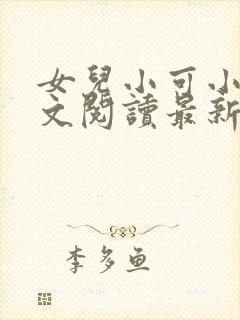 女兒小可小
文閱讀最新
李多鱼